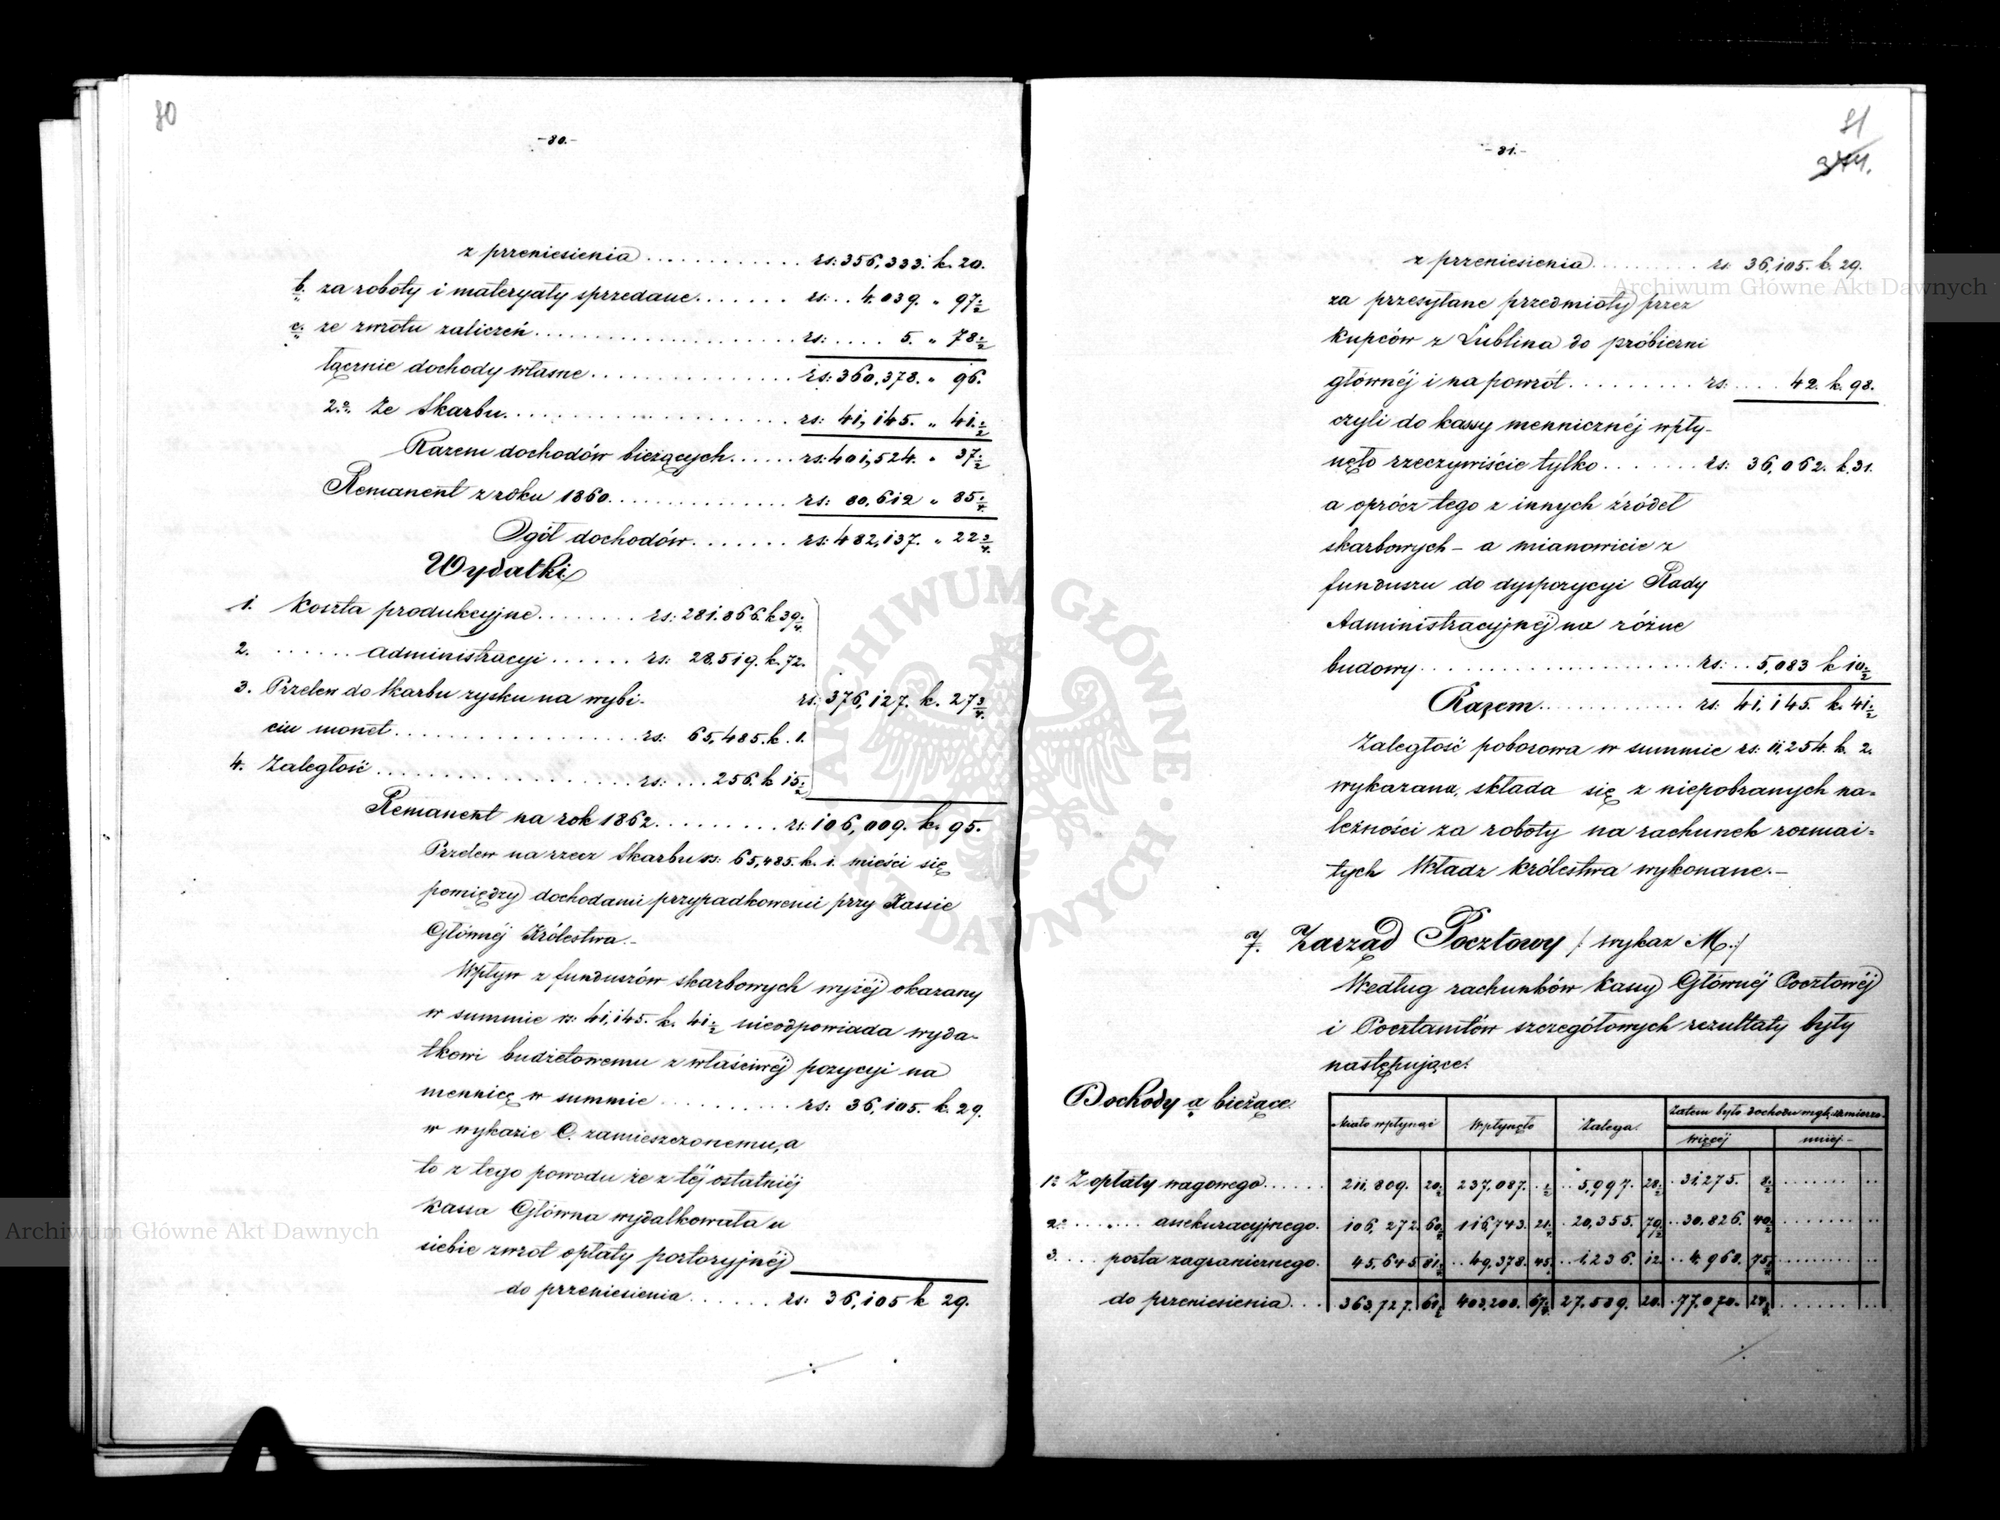 80
-80.-
z przeniesienia ............ rs: 356,333. k. 20.
b. za roboty i materyały sprzedane ....... rs: .. 4.039. „ 97½
c. ze zwrotu zaliczeń ................ rs: .... 5. „ 78½
łącznie dochody własne ............ rs: 360,378. „ 96.
2.° Ze Skarbu .................. rs: 41,145. „ 41.½
Razem dochodów bieżących ...... rs: 401,524. „ 37½
Remanent z roku 1860 ............. rs: 80,612 „ 85¼
Ogół dochodów ....... rs: 482,137. „ 22¾
Wydatki
1. Koszta produkcyjne ........ rs: 281.866. k 39¼
2. ...... administracyi ...... rs: 28,519. k. 72.
3. Przelew do Skarbu zysku na wybi-
rs: 376,127. k. 27¾
ciu monet ................. rs: 65,485. k. 1.
4. Zaległość .................. rs: ... 256. k 15½
Remanent na rok 1862 ......... rs: 106,009. k. 95.
Przelew na rzecz Skarbu rs: 65,485. k. 1. mieści się
pomiędzy dochodami przypadkowemi przy Kassie
Głównéj Królestwa.-
Wpływ z funduszów skarbowych wyżéj okazany
w summie rs: 41,145. k. 41½ nieodpowiada wyda-
tkowi budżetowemu z właściwéj pozycyi na
mennicę w summie .......... rs: 36,105. k. 29.
w wykazie C. zamieszczonemu, a
to z tego powodu że z téj ostatniéj
Kassa Główna wydatkowała u
siebie zwrot opłaty portoryjnéj
do przeniesienia ...... rs: 36,105 k 29.
81
-81.-
374.
z przeniesienia .......... rs: 36,105. k. 29.
za przesyłane przedmioty przez
kupców z Lublina do próbierni
głównéj i na powrót ......... rs: .... 42. k. 98.
czyli do kassy mennicznéj wpły-
nęło rzeczywiście tylko ....... rs: 36,062. k. 31.
a oprócz tego z innych źródeł
skarbowych - a mianowicie z
funduszu do dyspozycyi Rady
Administracyjnéj na różne
budowy .................... rs: .. 5,083 k 10½
Razem ............. rs: 41,145. k. 41½
Zaległość poborowa w summie rs: 11,254. k. 2.
wykazana, składa się z niepobranych na-
leżności za roboty na rachunek rozmai-
tych Władz Królestwa wykonane.-
7. Zarząd Pocztowy /: wykaz M. :/
Według rachunków Kassy Głównéj Pocztowéj
i Pocztamtów szczegółowych rezultaty były
następujące:
Dochody a bieżące.
Miało wpłynąć Wpłynęło Zalega. Zatem było dochodu względ. zmierzo.
więcéj mniéj-
1.° Z opłaty wagowego ...... 211,809. 20½ 237,087. ½ 5,997. 28½ 31,275. 8½
2.° ...... assekuracyjnego. 106,272. 60½ 116,743. 21¼ 20,355. 79½ 30,826. 40½
3. .... porta zagranicznego. 45,645 81½ 49,378. 45¼ 1,236. 12 4,968. 75¾
do przeniesienia ... 363,727. 61½ 403,208. 67¼ 27,589. 20. 77,070. 24¾
Archiwum Główne Akt Dawnych
Archiwum Główne Akt Dawnych
· ARCHIWUM GŁÓWNE · AKT DAWNYCH